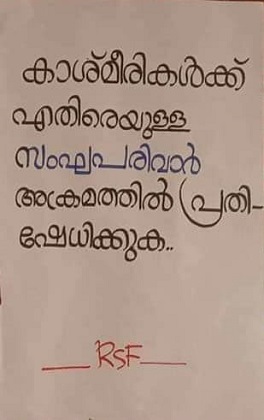 കാശ്മീരികൾക്ക്
എതിരെയുള്ള
സംഘപരിവാർ
അക്രമത്തിൽ പ്രതി-
ഷേധിക്കുക..
__ RSF __